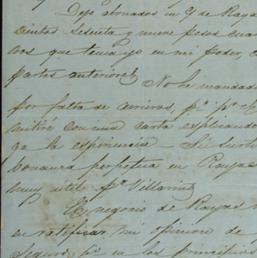 Dejo abonados en Y de Raya
cientos sesenta y nueve pesos cua
vos que tengo en mi poder,
partes anteriores.
No he mandado
por falta de arrieros, pº pº
mitiré con una carta explicando
ga la esperiencia
bonanza perpetua en Rayas
muy util pº Villarino
El negocio de Rayas
ratificar mi opinion de
seguro, pº en los principios